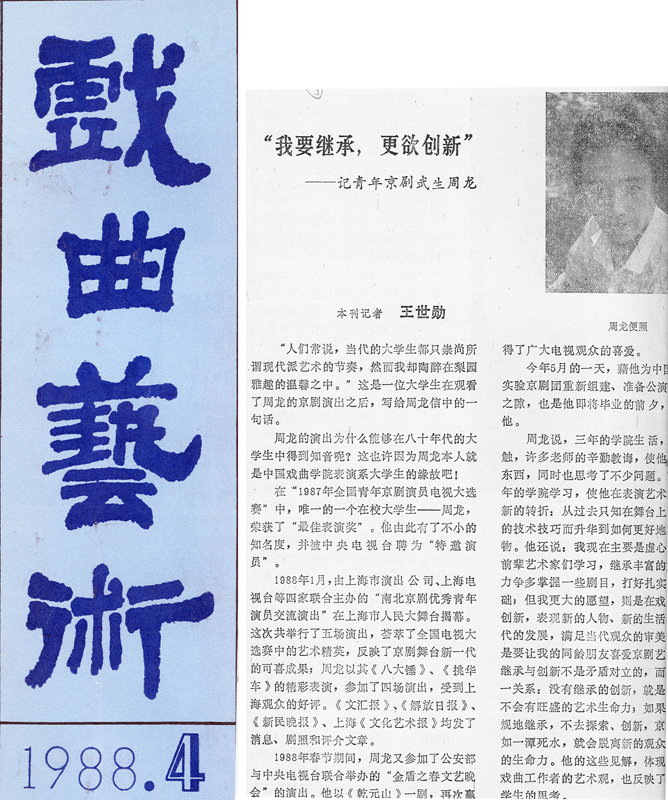 戲曲藝術
1988.4
“我要继承，更欲创新”
——记青年京剧武生周龙
本刊记者 王世勋
“人们常说，当代的大学生都只崇尚所
谓现代派艺术的节奏，然而我却陶醉在梨园
雅趣的温馨之中。”这是一位大学生在观看
了周龙的京剧演出之后，写给周龙信中的一
句话。
周龙的演出为什么能够在八十年代的大
学生中得到知音呢？这也许因为周龙本人就
是中国戏曲学院表演系大学生的缘故吧！
在“1987年全国青年京剧演员电视大选
赛”中，唯一的一个在校大学生——周龙，
荣获了“最佳表演奖”。他由此有了不小的
知名度，并被中央电视台聘为“特邀演
员”。
1988年1月，由上海市演出公司、上海电
视台等四家联合主办的“南北京剧优秀青年
演员交流演出”在上海市人民大舞台揭幕。
这次共举行了五场演出，荟萃了全国电视大
选赛中的艺术精英，反映了京剧舞台新一代
的可喜成果；周龙以其《八大锤》、《挑华
车》的精彩表演，参加了四场演出，受到上
海观众的好评。《文汇报》、《解放日报》、
《新民晚报》、上海《文化艺术报》均发了
消息、剧照和评介文章。
1988年春节期间，周龙又参加了公安部
与中央电视台联合举办的“金盾之春文艺晚
会”的演出。他以《乾元山》一剧，再次赢
周龙便照
得了广大电视观众的喜爱。
今年5月的一天，藉他为中国
实验京剧团重新组建、准备公演
之隙，也是他即将毕业的前夕，
他。
周龙说，三年的学院生活，
触，许多老师的辛勤教诲，使他
东西，同时也思考了不少问题。
年的学院学习，使他在表演艺术
新的转折：从过去只知在舞台上
的技术技巧而升华到如何更好地
物。他还说：我现在主要是虚心
前辈艺术家们学习，继承丰富的
力争多掌握一些剧目，打好扎实
础；但我更大的愿望，则是在戏
创新，表现新的人物、新的生活
代的发展，满足当代观众的审美
是要让我的同龄朋友喜爱京剧艺
继承与创新不是矛盾对立的，而
一关系：没有继承的创新，就是
不会有旺盛的艺术生命力；如果
规地继承，不去探索、创新，京
如一潭死水，就会脱离新的观众
的生命力。他的这些见解，体现
戏曲工作者的艺术观，也反映了
学生的思考。